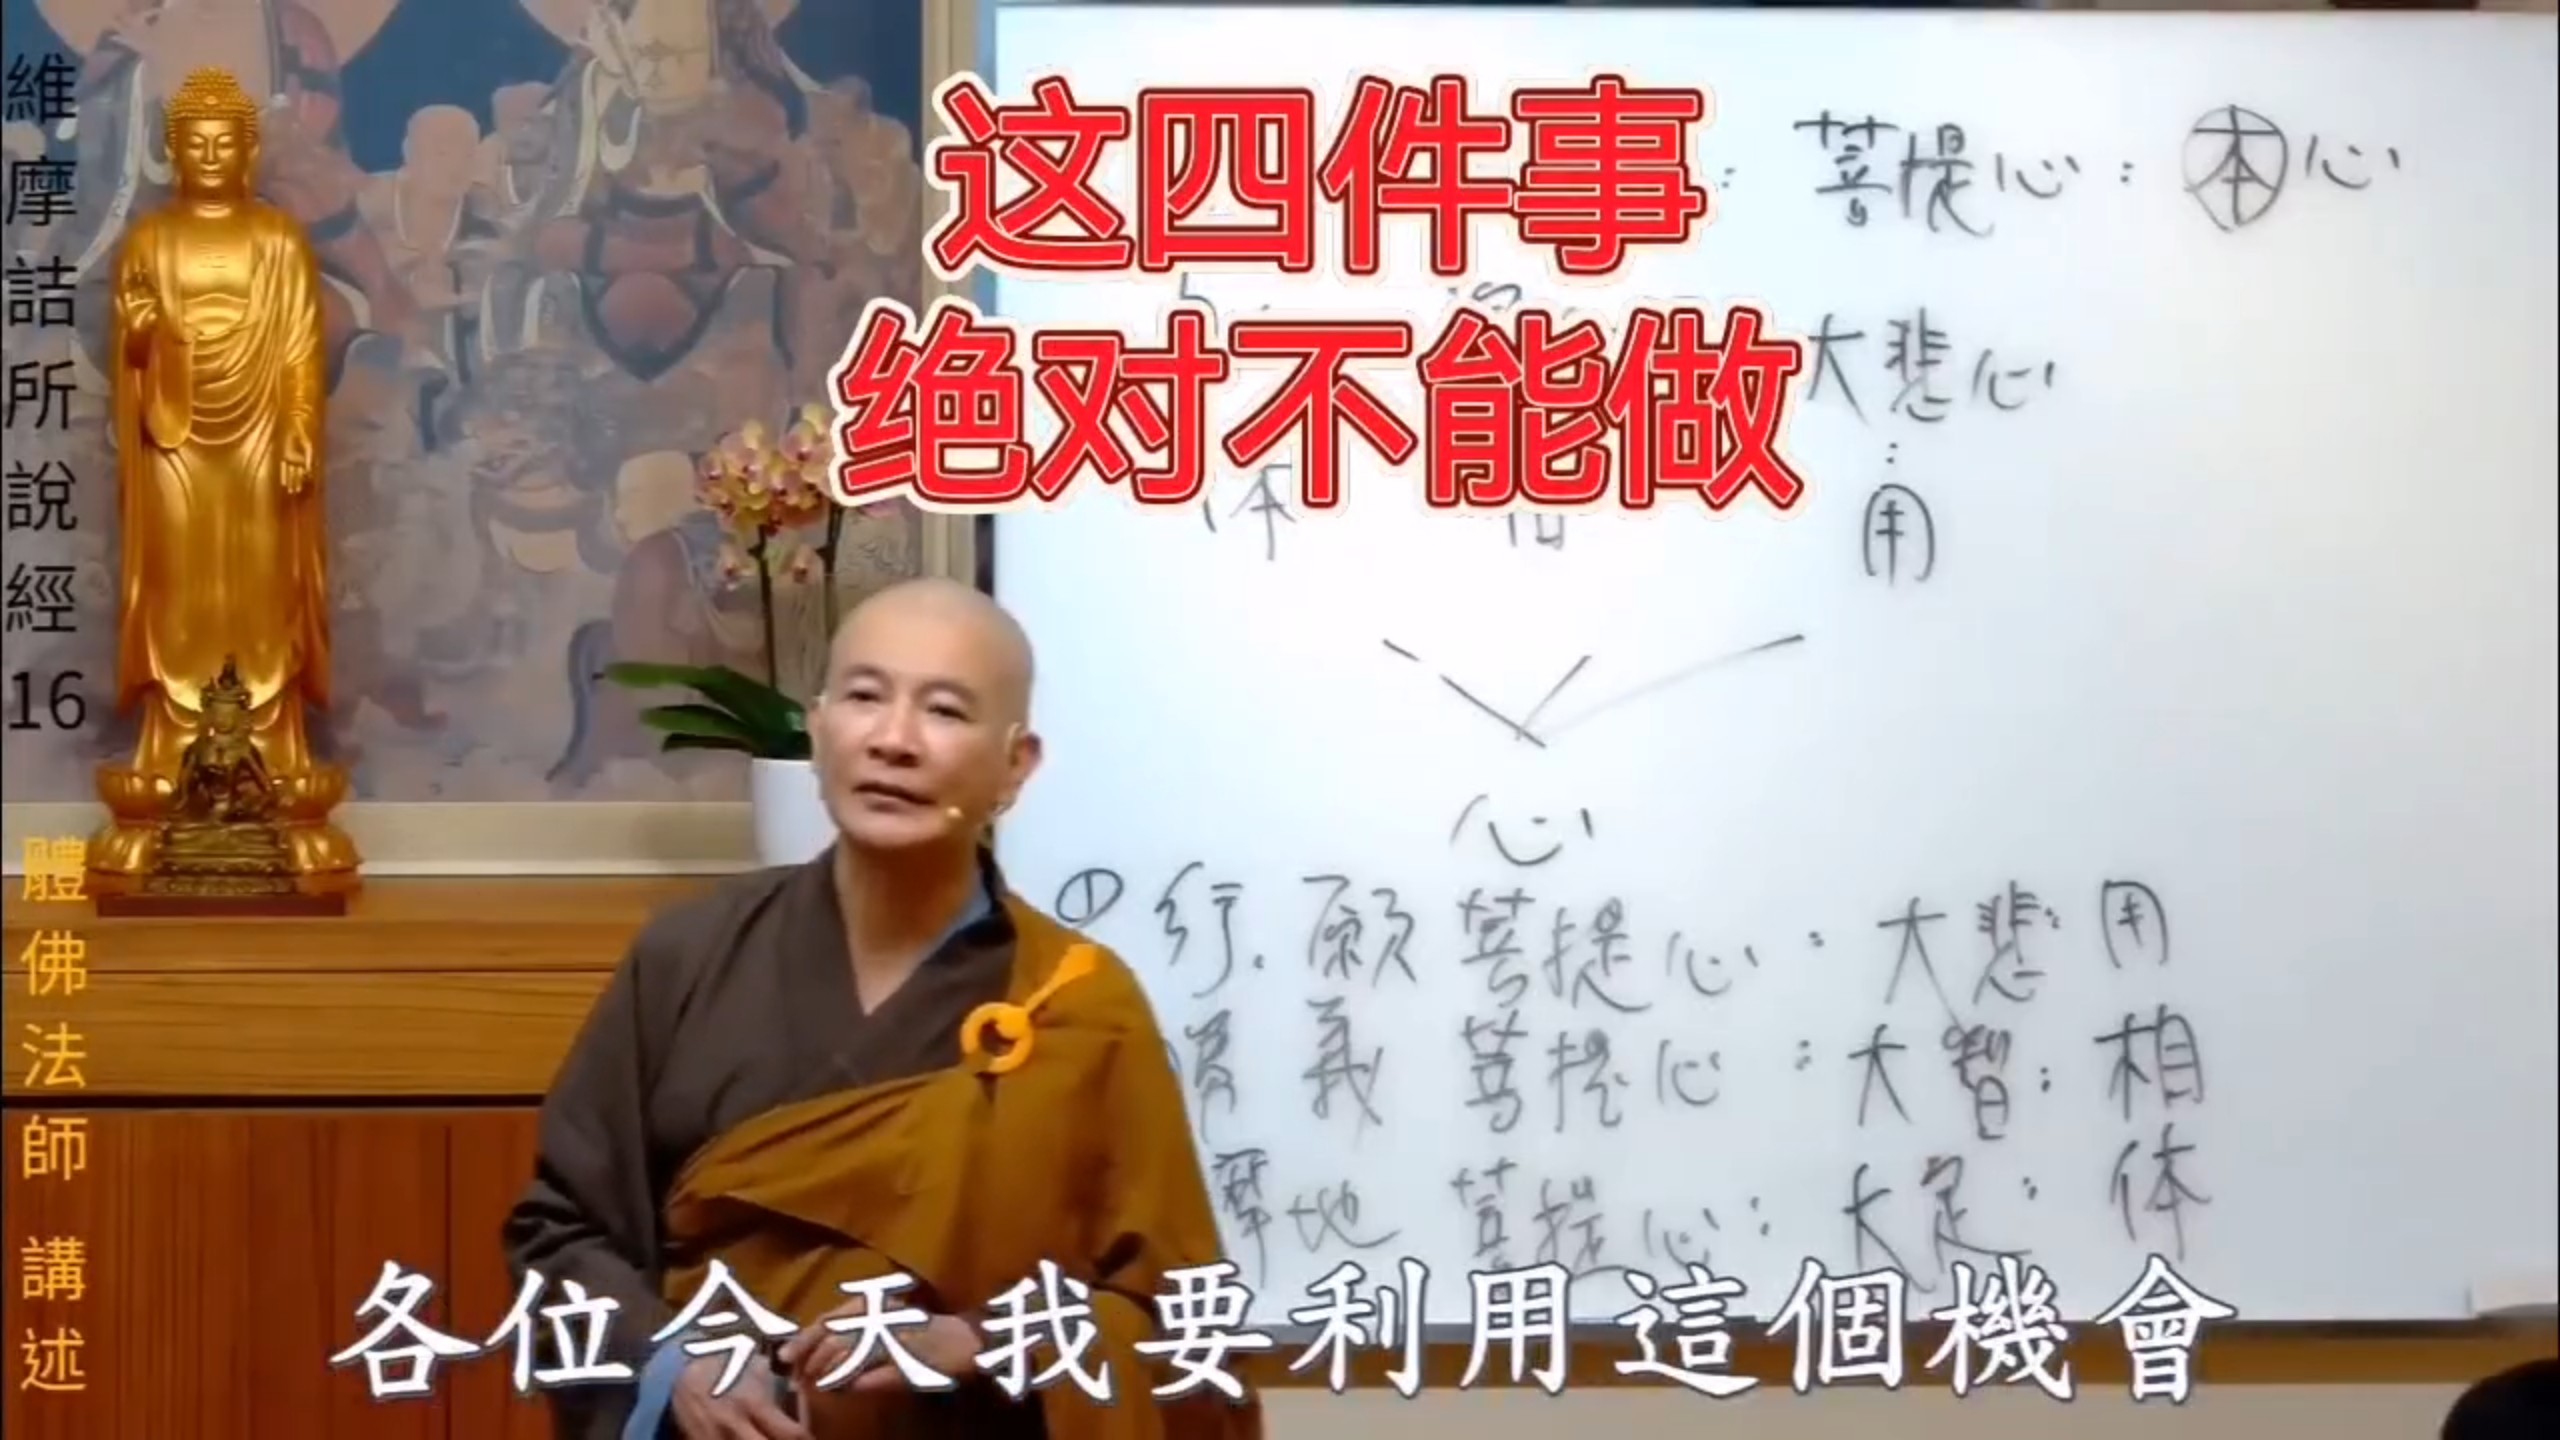 維摩詰所說經16
體佛法師 講述
这四件事
绝对不能做
菩提心：本心
大悲心
：
用
体
心
① 行.願菩提心：大悲：用
義菩提心：大智：相
摩地菩提心：大定：体
各位今天我要利用這個機會